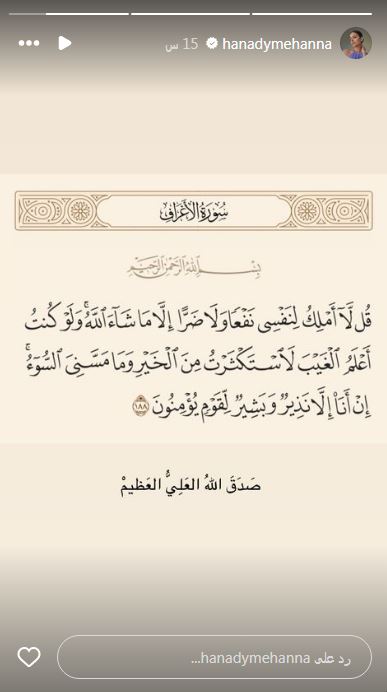 hanadymehanna 15 س
سُورَةُ الأَعْرَافِ
بِسْمِ اللَّهِ الرَّحْمَٰنِ الرَّحِيمِ
قُل لَّآ أَمْلِكُ لِنَفْسِى نَفْعًا وَلَا ضَرًّا إِلَّا مَا شَآءَ ٱللَّهُ ۚ وَلَوْ كُنتُ
أَعْلَمُ ٱلْغَيْبَ لَٱسْتَكْثَرْتُ مِنَ ٱلْخَيْرِ وَمَا مَسَّنِىَ ٱلسُّوٓءُ ۚ
إِنْ أَنَا۠ إِلَّا نَذِيرٌ وَبَشِيرٌ لِّقَوْمٍ يُؤْمِنُونَ ١٨٨
صَدَقَ اللهُ العَلِيُّ العَظِيمْ
رد على hanadymehanna...